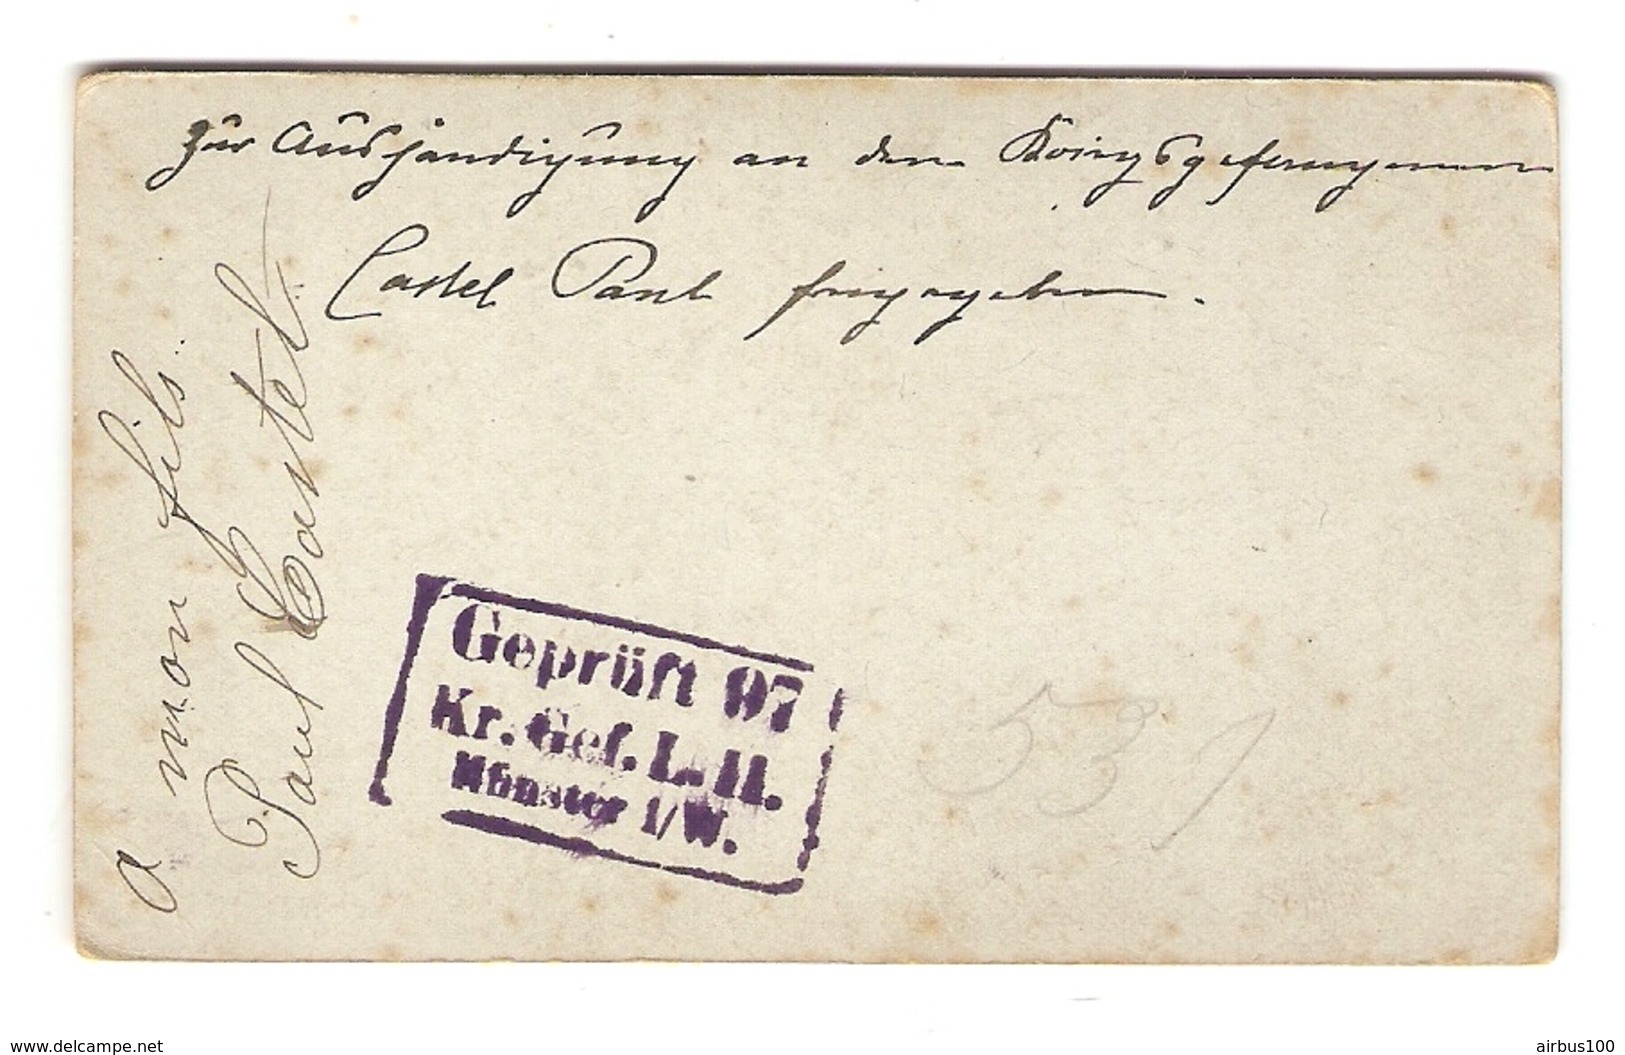 Zur Aushändigung an den Kriegsgefangenen
Castel Paul freigegeben.
a mon fils
Paul Castel
Geprüft 97
Kr. Gef. L. II.
Münster i/W.
531
www.delcampe.net
airbus100